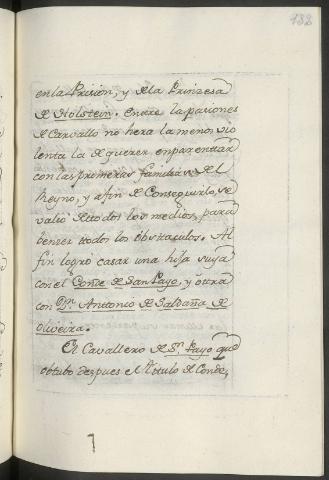 132
en la Prision, y de la Prinzesa
de Holstein. Entre las pasiones
de Carvallo no hera la menos vio
lenta la de querer enparentar
con las primeras familias del
Reyno, y afin de Conseguirlo, se
valió de todos los medios, para
benzer ttodos los obsttaculos. Al
fin logró casar una hija suya
con el Conde de San Payo, y ottra
con Dn. Anttonio de Saldaña de
Oliveira.
El Cavallero de Sn. Payo que
obtubo despues el tittulo de Conde,